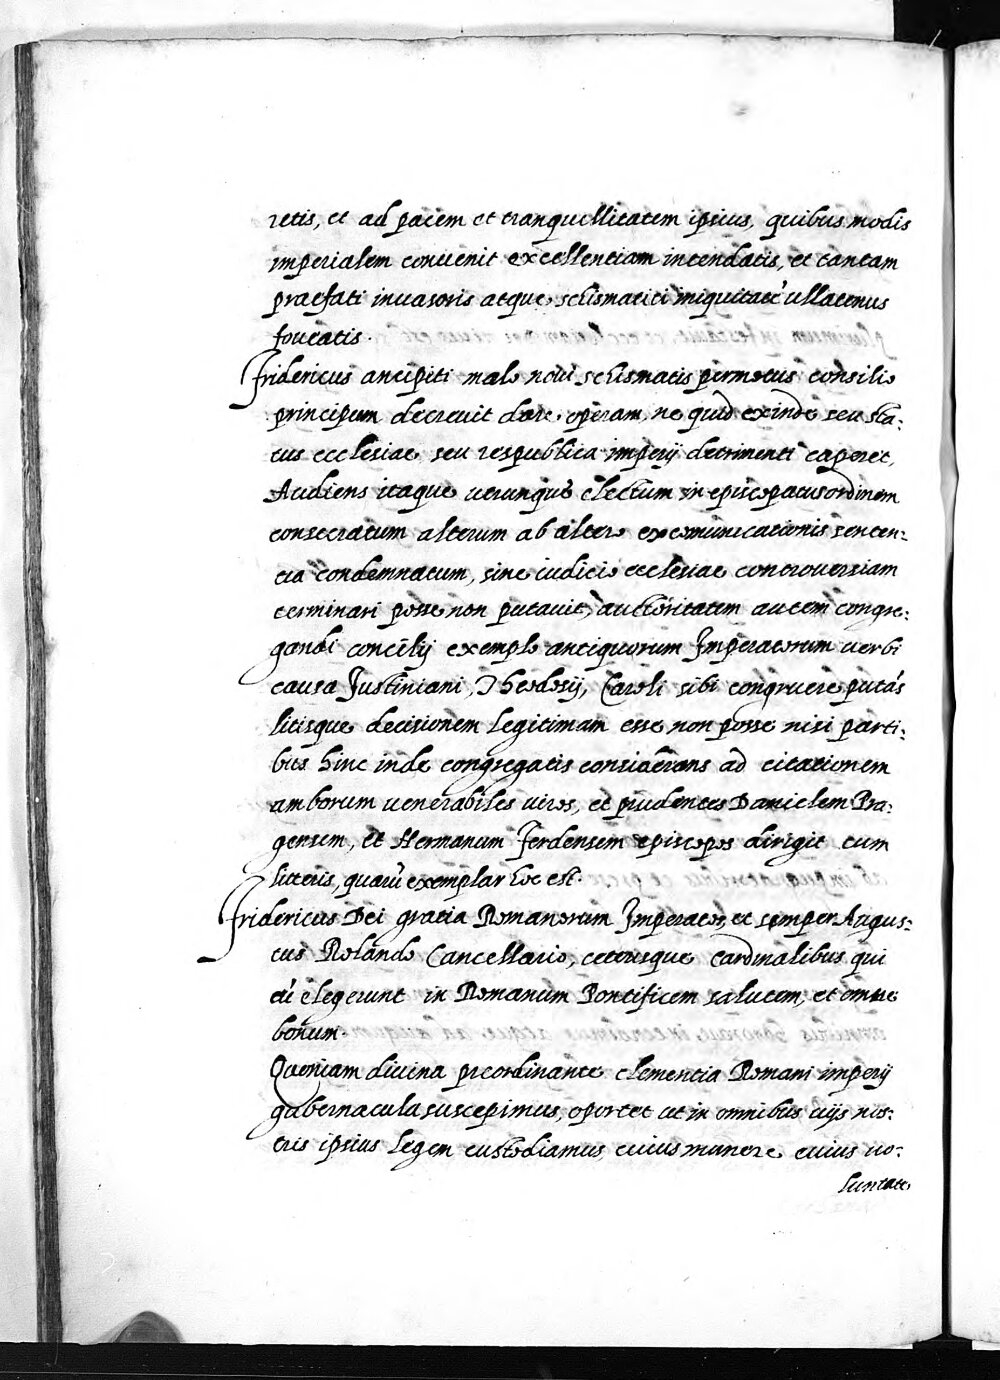 retis, et ad pacem et tranquillitatem ipsius, quibus modis
imperialem convenit excellentiam intendatis, et tantam
praefati invasoris atque schismatici iniquitatē ullatenus
foveatis.
Fridericus ancipiti malo novi schismatis permotus consilio
principum decrevit dare operam, ne quid exinde seu sta:
tus ecclesiae seu respubblica imperij detrimenti caperet,
Audiens itaque utrunque electum in episcopatus ordinem
consecratum alterum ab altero excomunicationis senten:
tia condemnatum, sine iudicio ecclesiae controversiam
terminari posse non putavit, auctoritatem autem congre:
gandi concilij exemplo antiquorum Imperatorum verbi
causa Justiniani, Theodosij, Caroli sibi congruere putās
litisque decisionem legitimam esse non posse nisi parti:
bus hinc inde congregatis considerans ad citationem
amborum venerabiles viros, et prudentes Danielem Pra:
gensem, et Hermanum Ferdensem episcopos dirigit cum
litteris, quarū exemplar hoc est.
Fridericus Dei gratia Romanorum Imperator, et semper Augus:
tus Rolando Cancellario, ceterisque cardinalibus qui
eū elegerunt in Romanum Pontificem salutem, et omne
bonum.
Quoniam divina preordinante clementia Romani imperij
gubernacula suscepimus, oportet ut in omnibus vijs nos:
tris ipsius legem custodiamus cuius munere cuius vo:
luntate